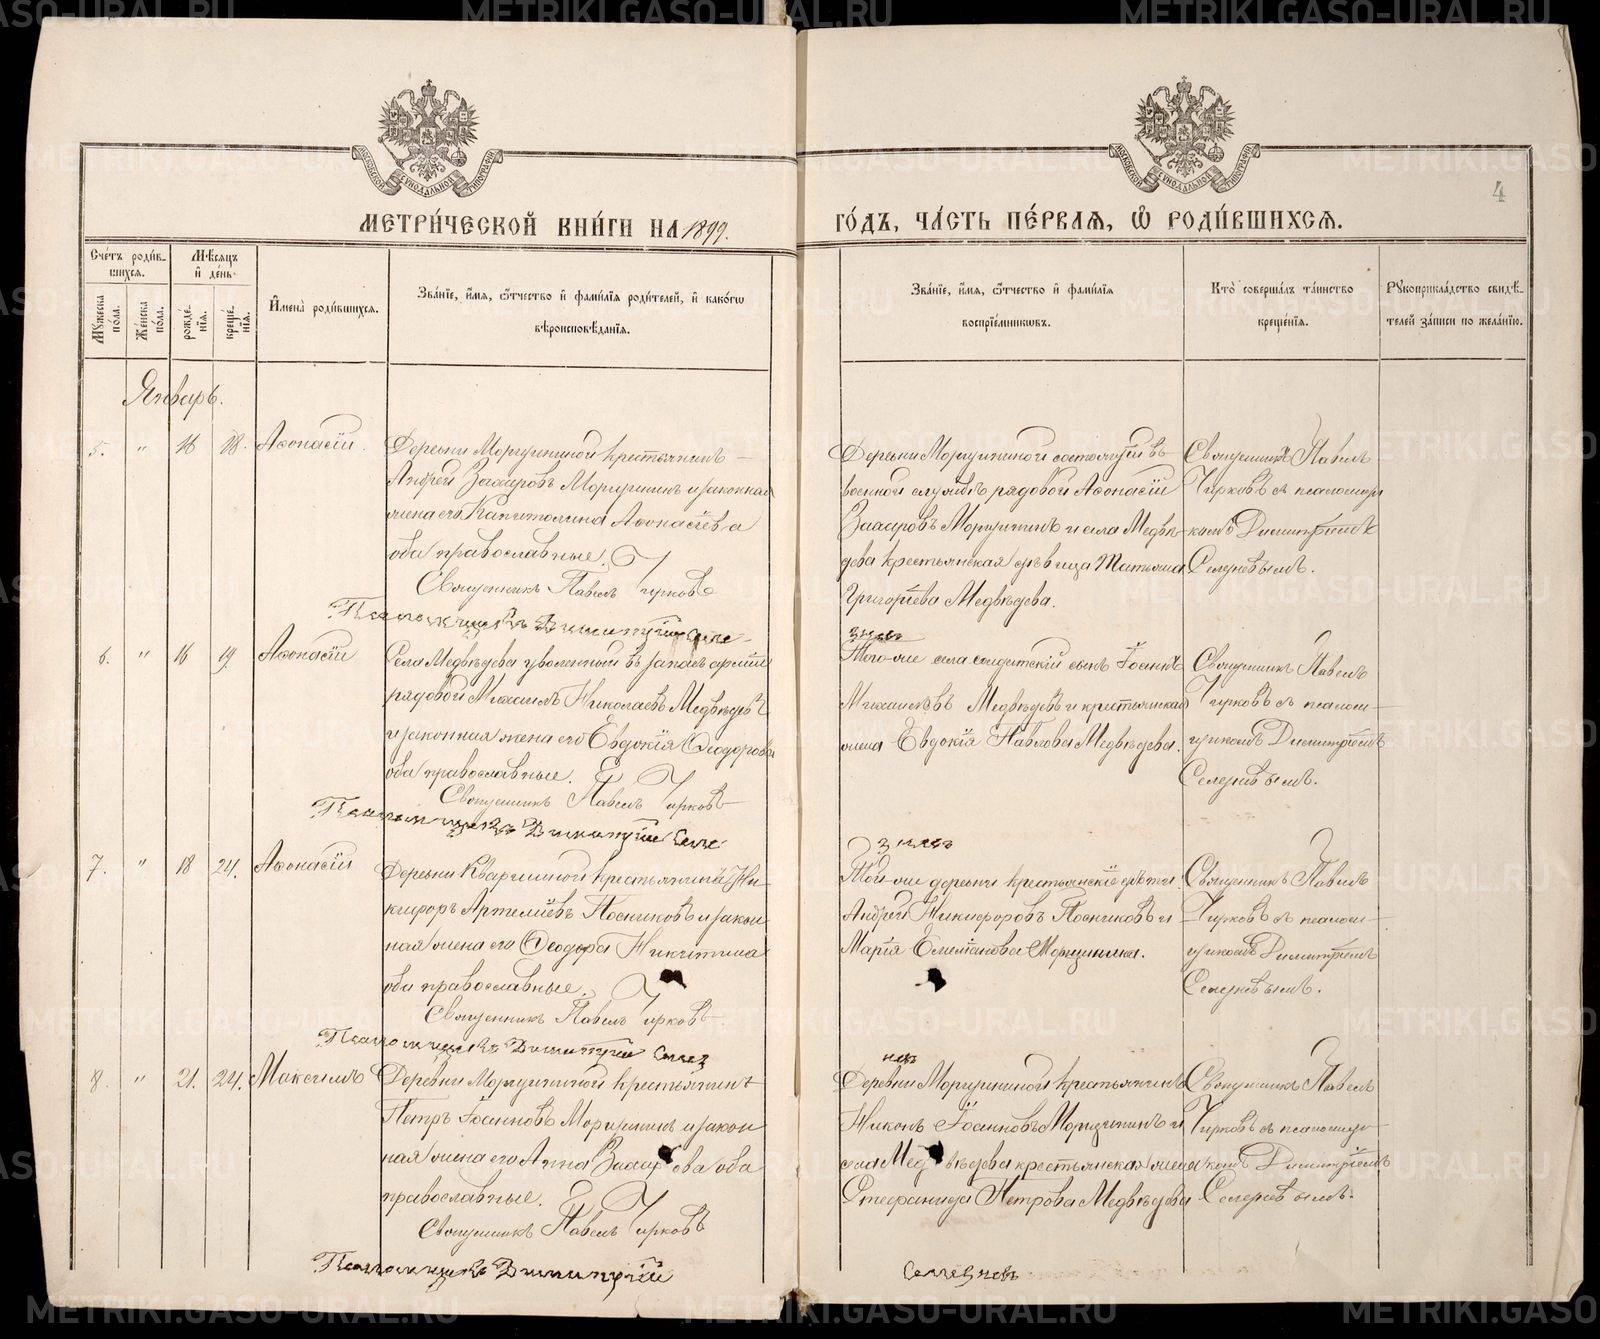 МЕТРИ́ЧЕСКОЙ КНИ́ГИ НА 1899. ГО́ДЪ, ЧА́СТЬ ПЕ́РВАЯ, Ѡ РОДИ́ВШИХСЯ.
4
Сче́тъ роди́в-
шихся.
Мѣ́сяцъ
и҆ де́нь
Му́жеска по́ла.
Же́нска по́ла.
рожде́-нїя.
креще́-нїя.
И҆мена̀ роди́вшихся.
Зва́нїе, и҆́мя, ѻ҆́тчество и҆ фами́лїя роди́телей, и҆ како́гѡ
вѣроисповѣ́данїя.
Зва́нїе, и҆́мя, ѻ҆́тчество и҆ фами́лїя
воспрїе́мникωвъ.
Кто̀ соверша́лъ та́инство
креще́нїя.
Рꙋкоприкла́дство свидѣ́-
телей за́писи по жела́нїю.
Январь.
5. " 16 18. Аѳонасій
Деревни Морщининой крестьянинъ
Андрей Захаровъ Морщининъ и законная
жена его Капитолина Аѳонасіева
оба православные.
Священникъ Павелъ Чирковъ
Псаломщикъ Димитрій Селе-
знев
Деревни Морщининой состоящій въ
военной службѣ рядовой Аѳонасій
Захаровъ Морщининъ и села Медвѣ-
дева крестьянская дѣвица Татьяна
Григоріева Медвѣдева.
Священникъ Павелъ
Чирковъ съ псаломщи
комъ Димитріемъ
Селезневымъ.
6. " 16 19. Аѳонасій
Села Медвѣдева уволенный въ запасъ арміи
рядовой Михаилъ Николаевъ Медвѣдевъ
и законная жена его Евдокія Ѳеодорова
оба православные.
Священникъ Павелъ Чирковъ
Псаломщикъ Димитрій Селе-
знев
Того-же села солдатскій сынъ Іоаннъ
Михаиловъ Медвѣдевъ и крестьянская
жена Евдокія Павлова Медвѣдева.
Священникъ Павелъ
Чирковъ съ псалом-
щикомъ Димитріемъ
Селезневымъ.
7. " 18 24. Аѳонасій
Деревни Квашниной крестьянинъ Ни-
кифоръ Артеміевъ Посниковъ и закон
ная жена его Ѳеодора Никитина
оба православные.
Священникъ Павелъ Чирковъ
Псаломщикъ Димитрій Селез
нев
Той-же деревни крестьянскіе дѣти
Андрей Никифоровъ Посниковъ и
Марія Емиліанова Морщинина.
Священникъ Павелъ
Чирковъ съ псалом-
щикомъ Димитріемъ
Селезневымъ.
8. " 21. 24. Максимъ
Деревни Морщининой крестьянинъ
Петръ Іоанновъ Морщининъ и закон
ная жена его Анна Захарова оба
православные.
Священникъ Павелъ Чирковъ
Псаломщикъ Димитрій Селезневъ
Деревни Морщининой крестьянинъ
Никонъ Іоанновъ Морщининъ и
села Медвѣдева крестьянская жена
Стефанида Петрова Медвѣдева
Священникъ Павелъ
Чирковъ съ псаломщи-
комъ Димитріемъ
Селезневымъ.
METRIKI.GASO-URAL.RU